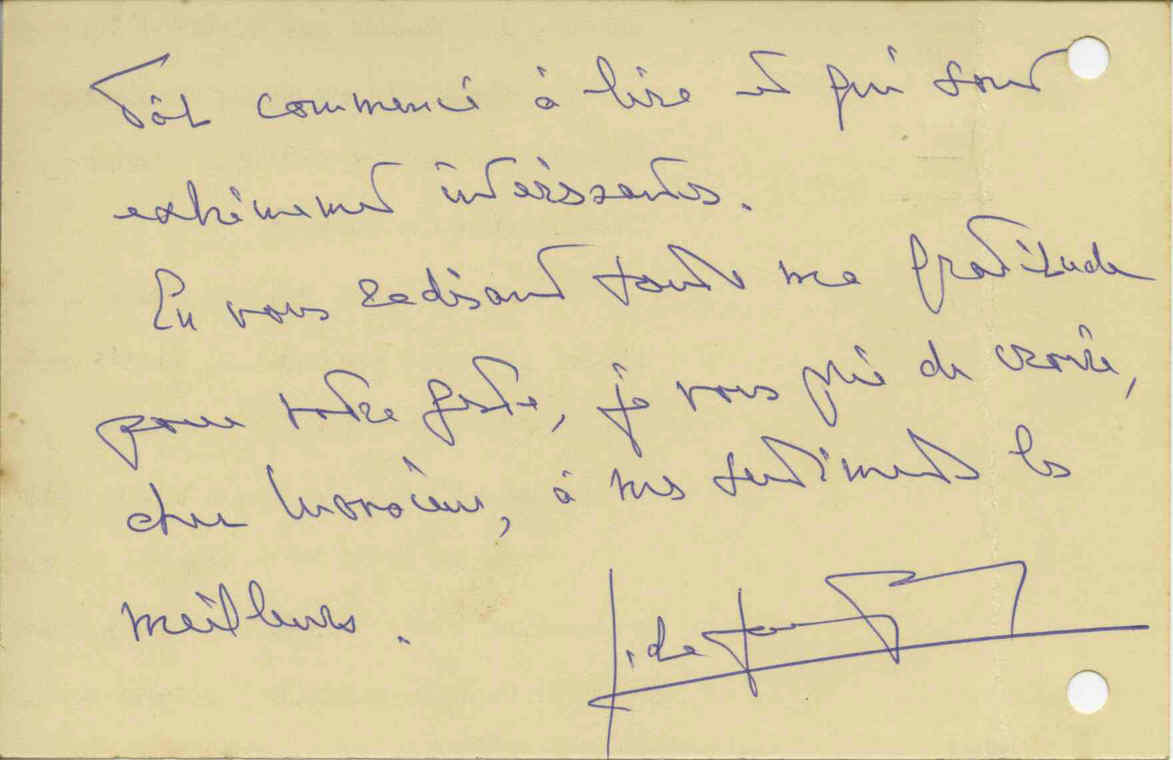 tôt commencé à lire et qui sont
extrêmement intéressantes.
En vous redisant toute ma gratitude
pour votre geste, je vous prie de croire,
cher Monsieur, à mes sentiments les
meilleurs.
J. de